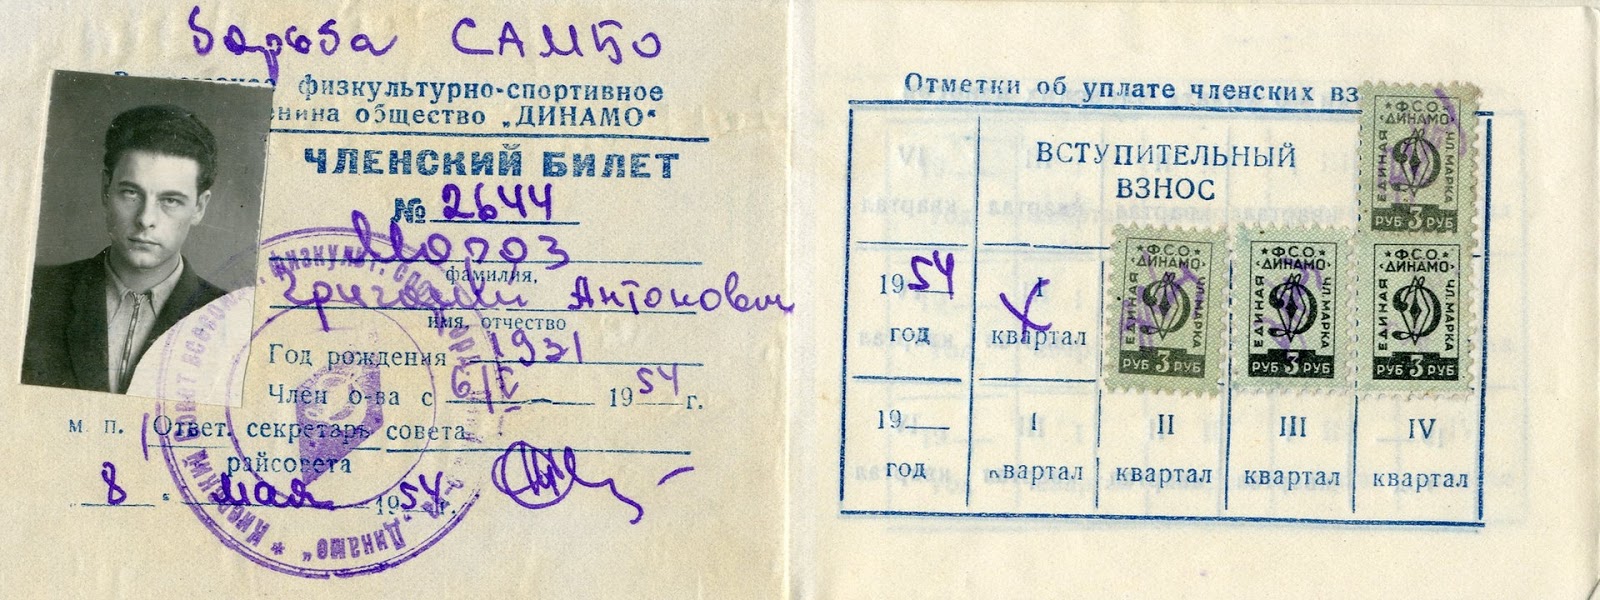 Борьба САМБО
физкультурно-спортивное
общество „ДИНАМО“
ЧЛЕНСКИЙ БИЛЕТ
№ 2644
Мороз
фамилия,
Григорий Антонович
имя, отчество
Год рождения 1931
Член о-ва с 6/V 1954 г.
м. п. Ответ. секретарь совета
райсовета
8 " мая 1954 г.
Отметки об уплате членских
ВСТУПИТЕЛЬНЫЙ
ВЗНОС
ФСО
ДИНАМО
ЕДИНАЯ
ЧЛ. МАРКА
РУБ 3 РУБ
1954
год
I
квартал
ФСО
ДИНАМО
ЕДИНАЯ
ЧЛ. МАРКА
РУБ 3 РУБ
ФСО
ДИНАМО
ЕДИНАЯ
ЧЛ. МАРКА
РУБ 3 РУБ
ФСО
ДИНАМО
ЕДИНАЯ
ЧЛ. МАРКА
РУБ 3 РУБ
19
год
I
квартал
II
квартал
III
квартал
IV
квартал